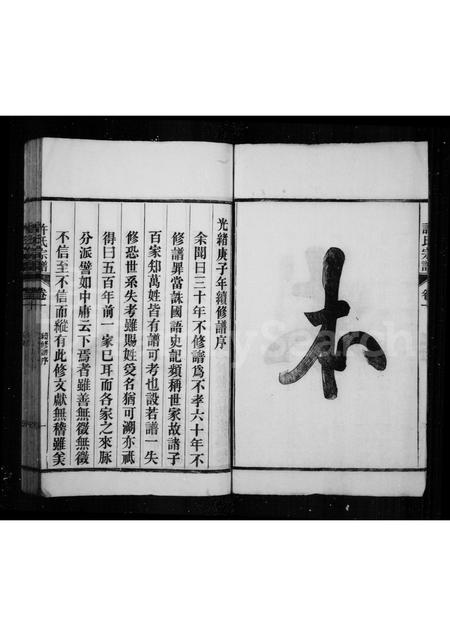 許氏宗譜 卷一
本
光緒庚子年續修譜序
余聞曰三十年不修譜爲不孝六十年不
修譜罪當誅國語史記類稱世家故諸子
百家知萬姓皆有譜可考也設若譜一失
修恐世系失考雖賜姓受名猶可溯亦祇
得曰五百年前一家已耳而各家之來脉
分派譬如中庸云下焉者雖善無徵無徵
不信至不信而縱有此修文獻無稽雖美
許氏宗譜 卷一 續修譜序 一